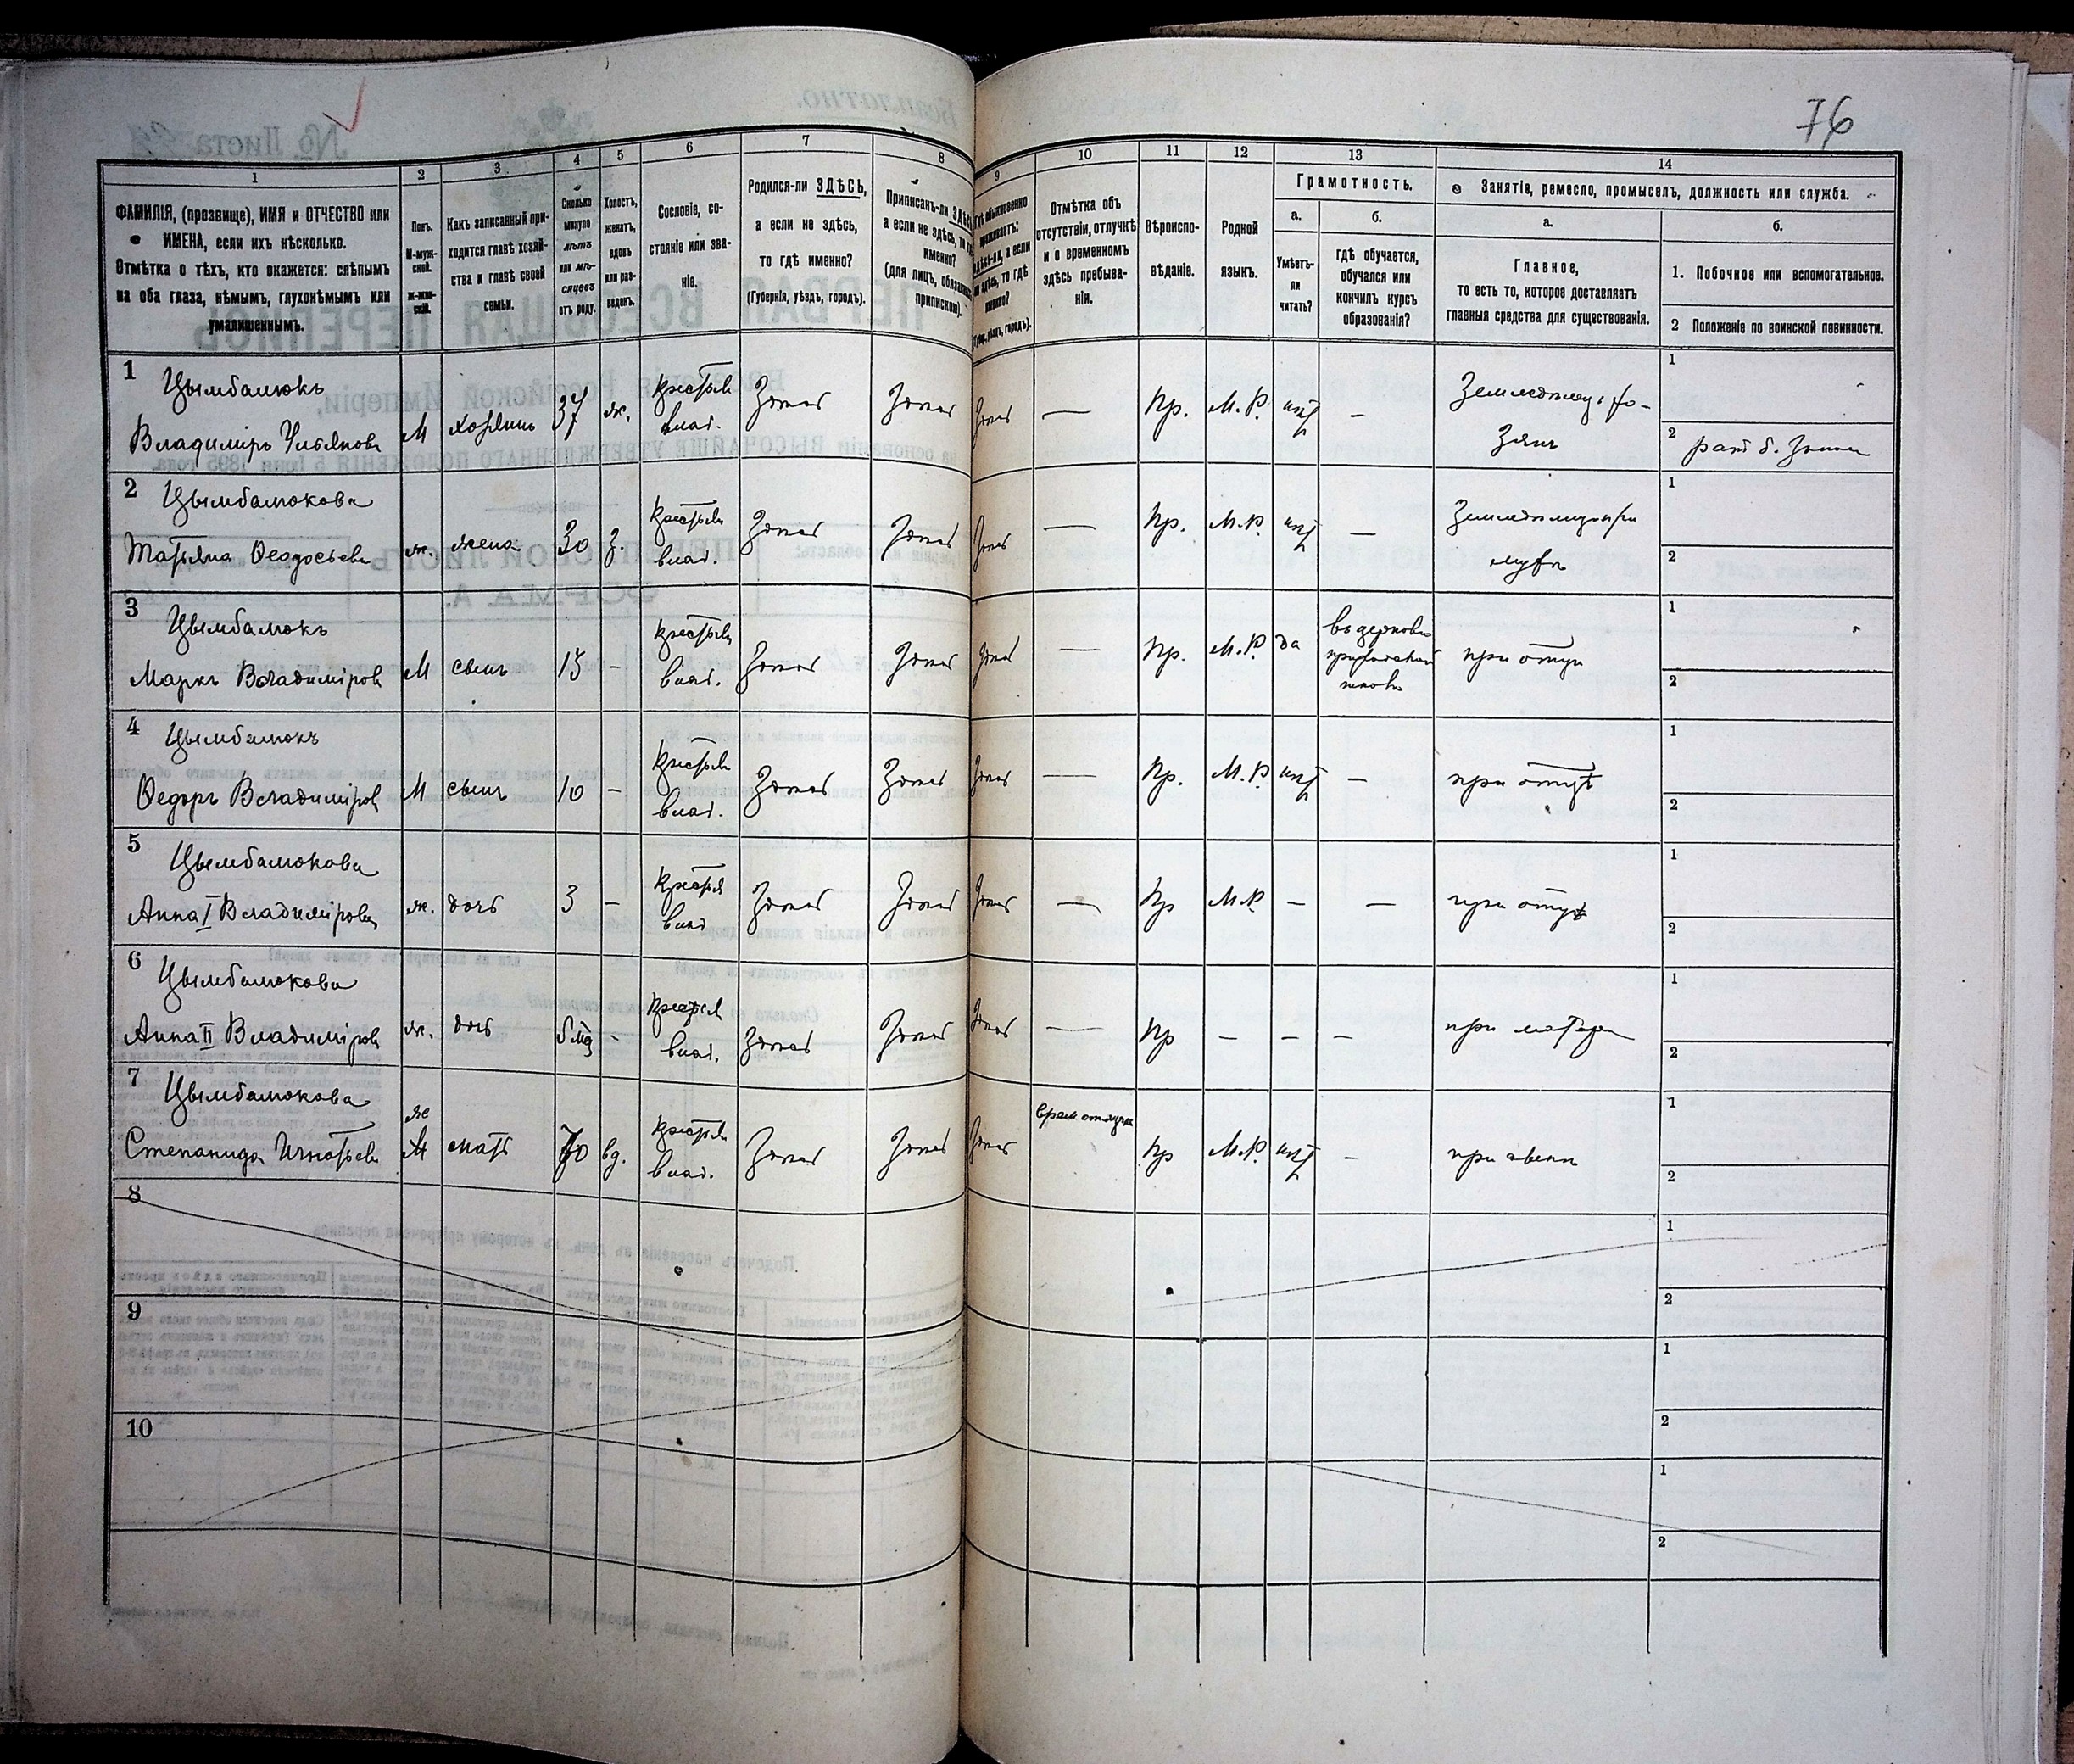 76
1 2 3 4 5 6 7 8 9 10 11 12 13 14
ФАМИЛІЯ, (прозвище), ИМЯ и ОТЧЕСТВО или
ИМЕНА, если ихъ нѣсколько.
Отмѣтка о тѣхъ, кто окажется: слѣпымъ
на оба глаза, нѣмымъ, глухонѣмымъ или
умалишеннымъ.
Полъ.
М-муж-
ской.
ж-жен-
скій.
Какъ записанный при-
ходится главѣ хозяй-
ства и главѣ своей
семьи.
Сколько
минуло
лѣтъ
или мѣ-
сяцевъ
отъ роду.
Холостъ,
женатъ,
вдовъ
или раз-
веденъ.
Сословіе, со-
стояніе или зва-
ніе.
Родился-ли ЗДѢСЬ,
а если не здѣсь,
то гдѣ именно?
(Губернія, уѣздъ, городъ).
Приписанъ-ли
а если не здѣсь, то
именно?
(для лицъ,
припискою).
Отмѣтка объ
отсутствіи, отлучкѣ
и о временномъ
здѣсь пребыва-
ніи.
Вѣроиспо-
вѣданіе.
Родной
языкъ.
Грамотность.
а.
Умѣетъ-
ли
читать?
б.
гдѣ обучается,
обучался или
кончилъ курсъ
образованія?
Занятіе, ремесло, промыселъ, должность или служба.
а.
Главное,
то есть то, которое доставляетъ
главныя средства для существованія.
б.
1. Побочное или вспомогательное.
2 Положеніе по воинской повинности.
1 Цымбалюкъ
Владиміръ Ульянова М хозяинъ 37 ж. крестьян влад. Здѣсь Здѣсь Здѣсь — Пр. М.Р. нѣт —
1
2
2 Цымбалюкова
Татьяна Ѳеодосьева ж. жена 30 З. крестьян влад. Здѣсь Здѣсь Здѣсь — Пр. М.Р. нѣт —
1
2
3 Цымбалюкъ
Маркъ Владиміров М сынъ 15 - крестьян влад. Здѣсь Здѣсь Здѣсь — Пр. М.Р. да при отцѣ
1
2
4 Цымбалюкъ
Ѳедоръ Владиміров М сынъ 10 - крестьян влад. Здѣсь Здѣсь Здѣсь — Пр. М.Р. нѣт — при отцѣ
1
2
5 Цымбалюкова
Анна I Владимірова ж. дочь 3 - крестья влад Здѣсь Здѣсь Здѣсь — Пр М.Р. — — при отцѣ
1
2
6 Цымбалюкова
Анна II Владиміров ж. дочь - крестья влад. Здѣсь Здѣсь Здѣсь — Пр — — — при матери
1
2
7 Цымбалюкова
Степанида Игнатьева ж мать 70 вд. крестьян влад. Здѣсь Здѣсь Здѣсь Пр М.Р. нѣт - при сынѣ
1
2
8
1
2
9
1
2
10
1
2